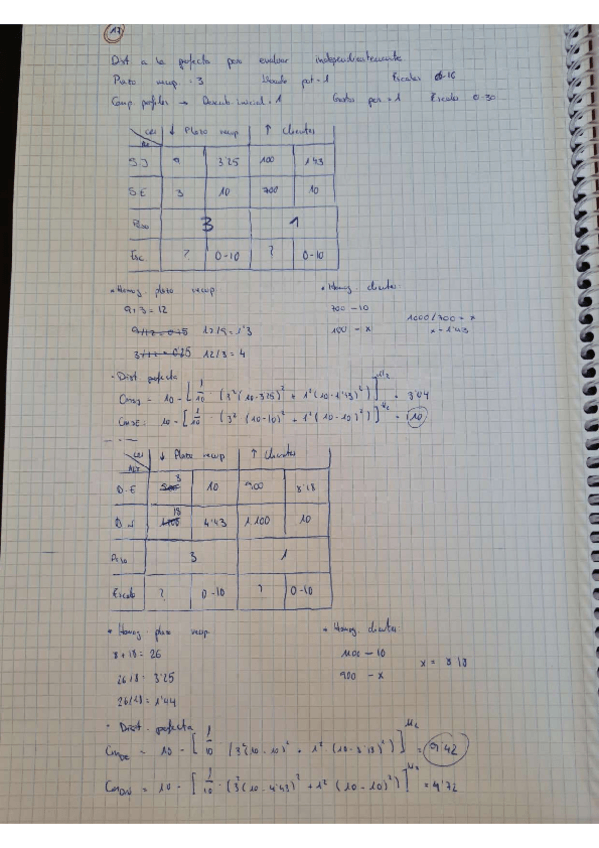 17
Dist a la perfecta para evaluar independientemente
Plazo recup = 3 pot = 1 Escalas 0-10
Comp perfiles → Descub. inicial = 1 Escalas 0-30
Cri ↓ Plazo recup ↑ Clientes
Alt
SJ 9 3'25 100 1'43
SE 3 10 700 10
Peso 3 1
Esc ? 0-10 ? 0-10
• Homog plazo recup • Homog. clientes
9+3 = 12 700 — 10 1000/700 = x
9/12 = 0'75 12/9 = 1'3 100 — x x = 1'43
12/3 = 4
• Dist perfecta
= 10 - [1/10 · (3²(10-3'25)² + 1²(10-1'43)²)]^1/2 = 3'04
CmSE = 10 - [1/10 · (3²(10-10)² + 1²(10-10)²)]^1/2 = 10
Cri ↓ Plazo recup ↑ Clientes
Alt
D.E 8 10 900 8'18
D.N 18 4'43 1.100 10
Peso 3 1
Escala ? 0-10 ? 0-10
• Homog. plazo recup • Homog. clientes
8+18 = 26 1100 — 10
26/8 = 3'25 900 — x x = 8'18
26/18 = 1'44
• Dist. perfecta
CmDE = 10 - [1/10 (3²(10-10)² + 1²(10-8'18)²)]^1/2 = 9'42
CmDN = 10 - [1/10 · (3²(10-4'43)² + 1²(10-10)²)]^1/2 = 4'72